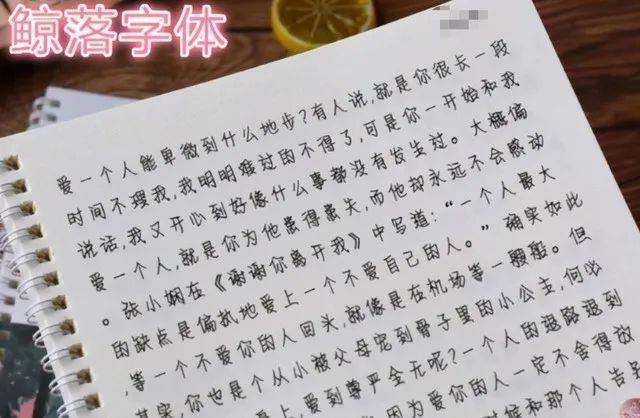 鲸落字体
爱一个人能卑微到什么地步?有人说,就是你很长一段
时间不理我,我明明难过的不得了,可是你一开始和我
说话,我又开心到好像什么事都没有发生过。大概偏
爱一个人,就是你为他患得患失,而他却永远不会感动
。张小娴在《谢谢你离开我》中写道:“一个人最大
的缺点是偏执地爱上一个不爱自己的人。”确实如此
,等一个不爱你的人回头,就像是在机场等一艘船。但
其实,你也是个从小被父母宠到骨子里的小公主,何必
爱到尊严全无呢?一个人的退路退到
因为爱你的人一定不会得放
和那个人告